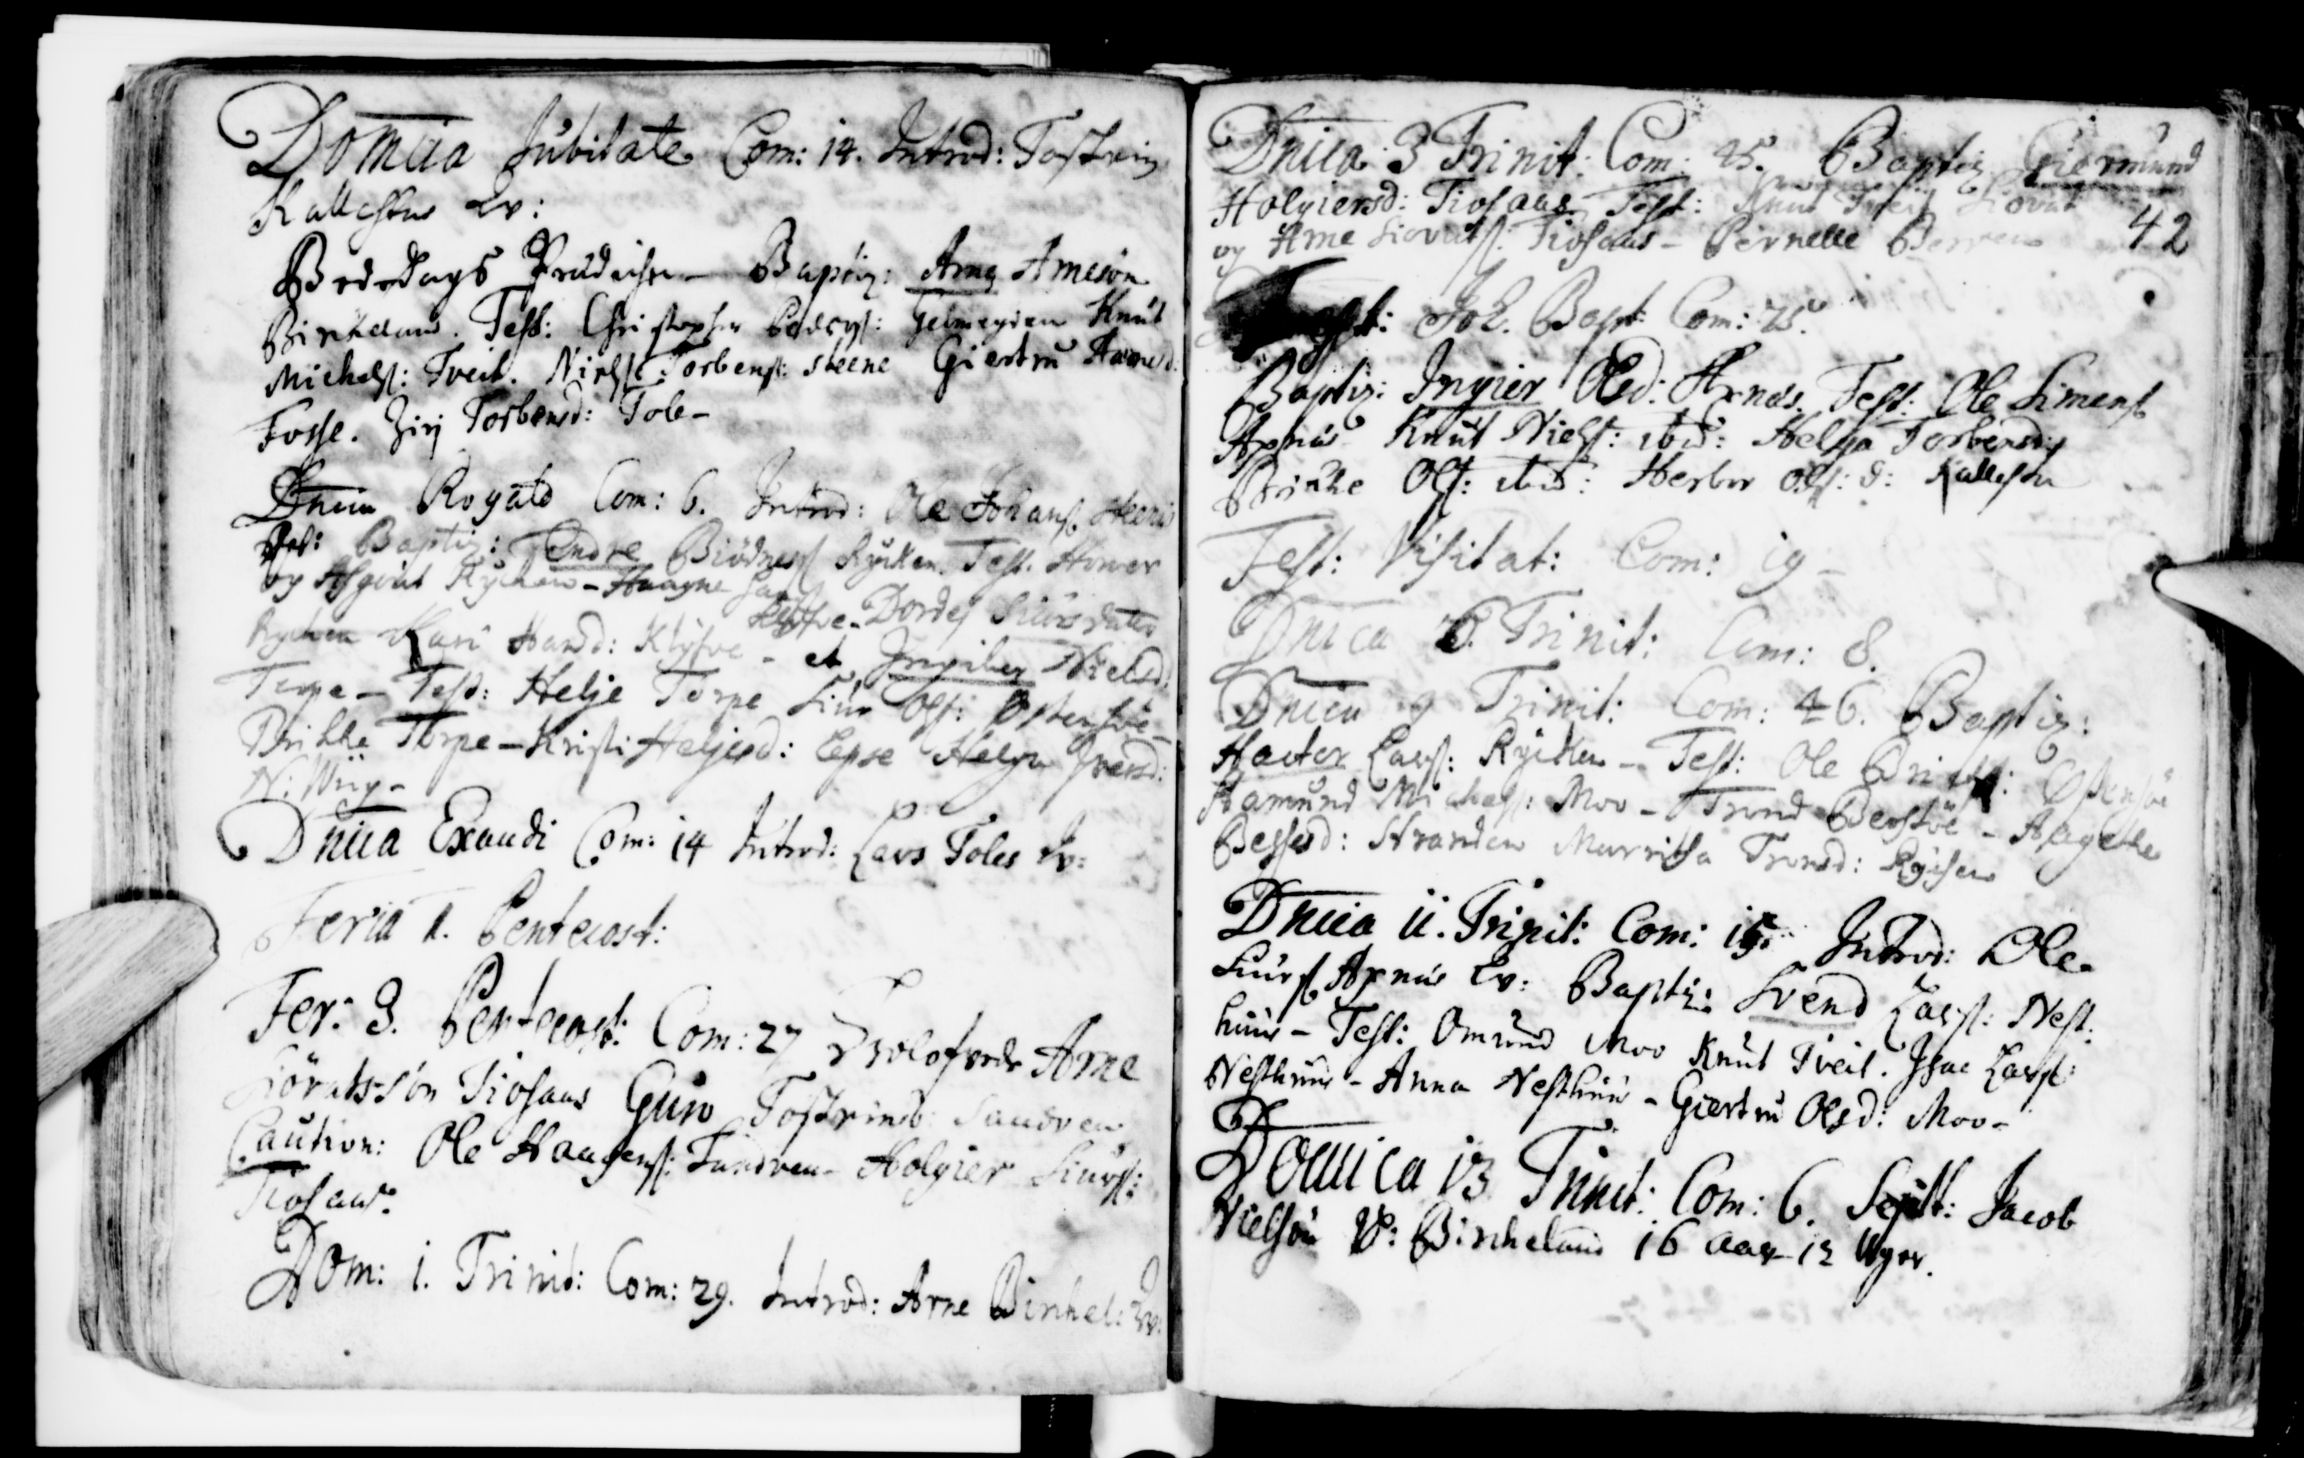 Domica Jubilate Com: 14. Introd: Tostein
Kallestue Qv:
Bededags Prædichen – Baptiz: Arne Arnesön
Birkeland. Test: Christopher Pedersß: Gelmeyden Knut
Michelß: Tveit. Nielß Torbenß: Steene Giertru
Fosse. Torbensd: Tole –
Dnica Rogate Com: 6. Introd: Ole Johanß
Baptiz: Endre Rycken. Test.
og Rycken – Haagne
Dordej Siursdatter
Rycken Kari Hansd: Klyfve – et Ingebor Nielsd:
Torpe – Test: Helje Torpe Siur Olß: Östensöe –
Brikke Torpe – Kristi Heljesd: Epse Helga Iversd:
N: Wiig –
Dnica Exaudi Com: 14 Introd: Lars Toles Qv:
Feria 1. Pentecost:
Fer: 3. Pentecost: Com: 27 Trolofvede Arne
Siovatssön Tiosaas Guro Tosteinsd: Sandven
Caution: Ole Haagenß: Sandven – Holgier Siurß:
Tiosaas.
Dom: 1. Trinit: Com: 29. Introd: Arne Birkel: Qv:
Dnica 3 Trinit: Com: 25. Baptiz Giermund
Holgiersd: Tiosaas Test: Knut Tveit Siovat 42
og Arne Siovatß: Tiosaas – Pernelle Berven
Fest: Joh. Bapt: Com: 25.
Baptiz: Ingier Olsd: Axnes. Test: Ole Simenß
Axnæs Knut Nielß: ibid: Helga Torbensd:
Brikke Olß: ibid: Herbor Olß: d: Kallestu
Fest: Visitat: Com: 19 –
Dnica 6. Trinit: Com: 8.
Dnica 9 Trinit: Com: 46. Baptiz:
Hactor Larß: Rycken – Test: Ole Östensöe
Hamund Michelß: Moo – Trond Berstöe – Aagethe
Bessesd: Stranden Marritha Tronsd: Rycken
Dnica 11. Trinit: Com: 15. Introd: Ole
Siurß Axnæs Qv: Baptiz: Svend Larß: Nest:
huus – Test: Omund Moo Knut Tveit. Isac Larß:
Nesthuus – Anna Nesthuus – Giertru Olsd: Moo –
Domica 13 Trinit: Com: 6. Sepult: Jacob
Nielsön V: Birkeland 16 aar 12 Uger.